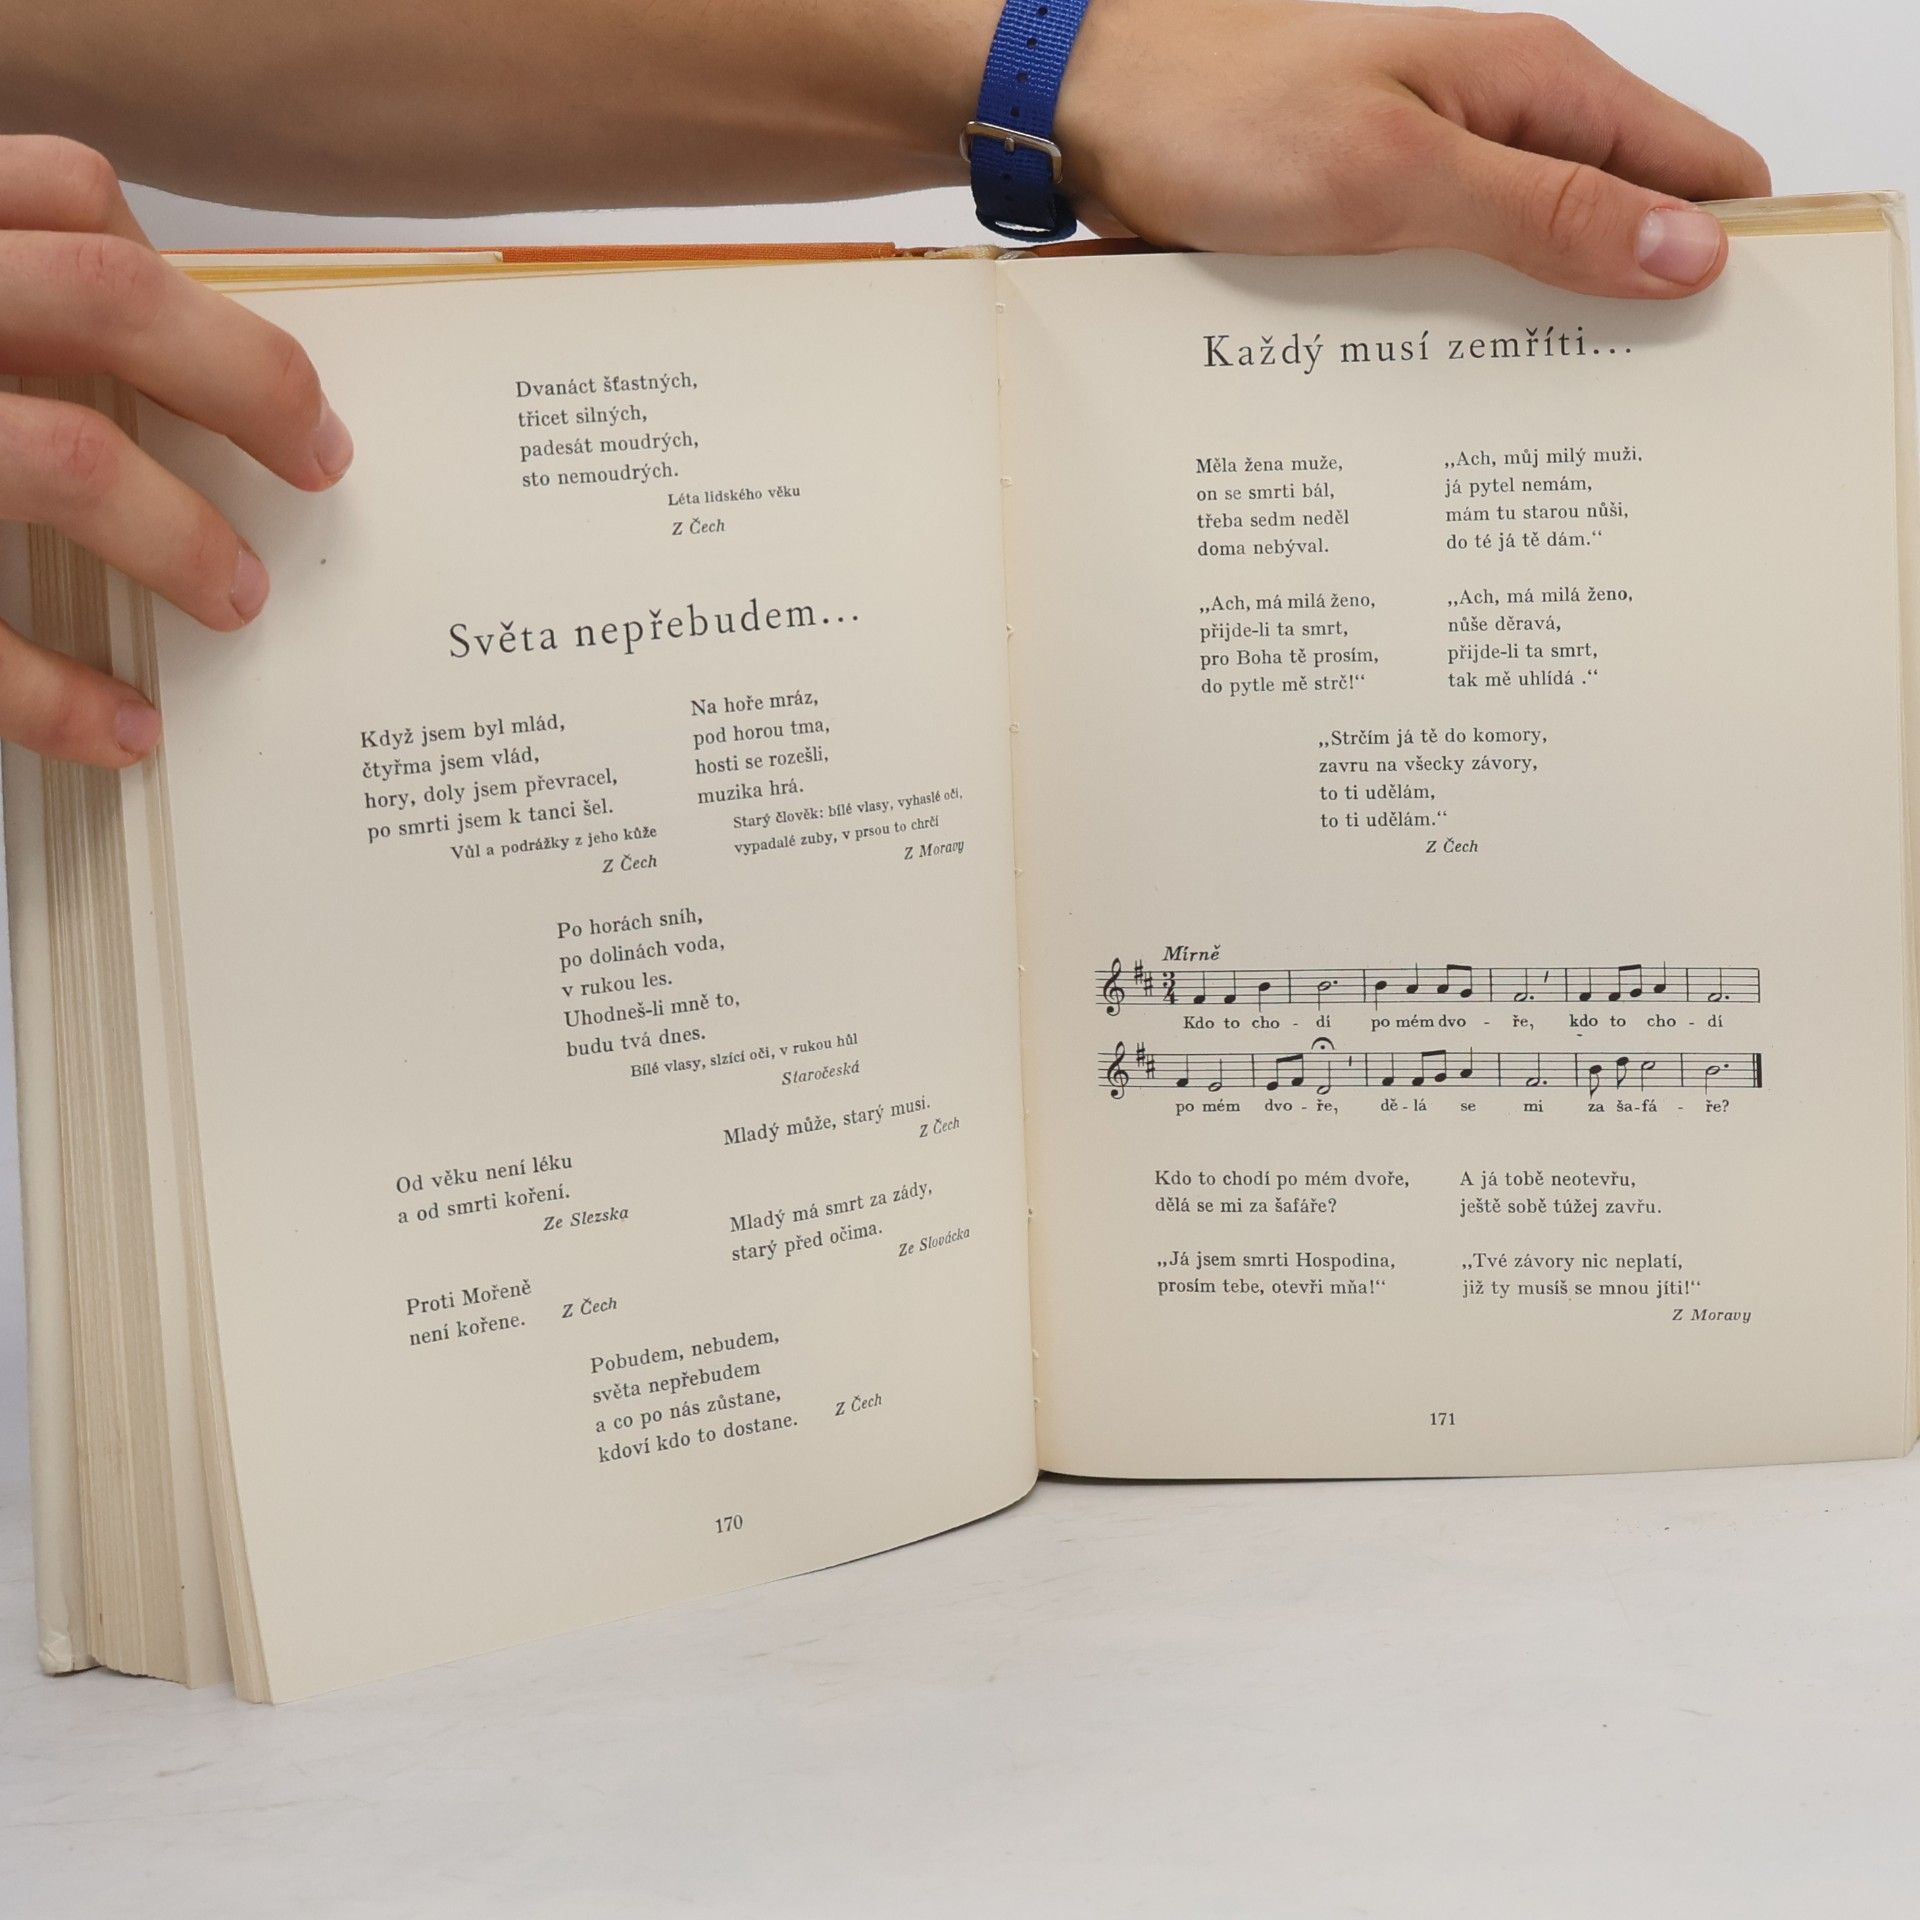 Dvanáct šťastných,
třicet silných,
padesát moudrých,
sto nemoudrých.
Léta lidského věku
Z Čech
Světa nepřebudem...
Když jsem byl mlád,
čtyřma jsem vlád,
hory, doly jsem převracel,
po smrti jsem k tanci šel.
Vůl a podrážky z jeho kůže
Z Čech
Na hoře mráz,
pod horou tma,
hosti se rozešli,
muzika hrá.
Starý člověk: bílé vlasy, vyhaslé oči,
vypadalé zuby, v prsou to chrčí
Z Moravy
Po horách sníh,
po dolinách voda,
v rukou les.
Uhodneš-li mně to,
budu tvá dnes.
Bílé vlasy, slzící oči, v rukou hůl
Staročeská
Mladý může, starý musí.
Z Čech
Od věku není léku
a od smrti koření.
Ze Slezska
Mladý má smrt za zády,
starý před očima.
Ze Slovácka
Proti Mořeně
není kořene.
Z Čech
Pobudem, nebudem,
světa nepřebudem
a co po nás zůstane,
kdoví kdo to dostane.
Z Čech
170
Každý musí zemříti...
Měla žena muže,
on se smrti bál,
třeba sedm neděl
doma nebýval.
„Ach, má milá ženo,
přijde-li ta smrt,
pro Boha tě prosím,
do pytle mě strč!“
„Ach, můj milý muži,
já pytel nemám,
mám tu starou nůši,
do té já tě dám.“
„Ach, má milá ženo,
nůše děravá,
přijde-li ta smrt,
tak mě uhlídá .“
„Strčím já tě do komory,
zavru na všecky závory,
to ti udělám,
to ti udělám.“
Z Čech
Mírně
3
4
Kdo to cho - dí po mém dvo - ře, kdo to cho - dí
po mém dvo - ře, dě - lá se mi za ša-fá - ře?
Kdo to chodí po mém dvoře,
dělá se mi za šafáře?
„Já jsem smrti Hospodina,
prosím tebe, otevři mňa!“
A já tobě neotevřu,
ještě sobě túžej zavřu.
„Tvé závory nic neplatí,
již ty musíš se mnou jíti!“
Z Moravy
171